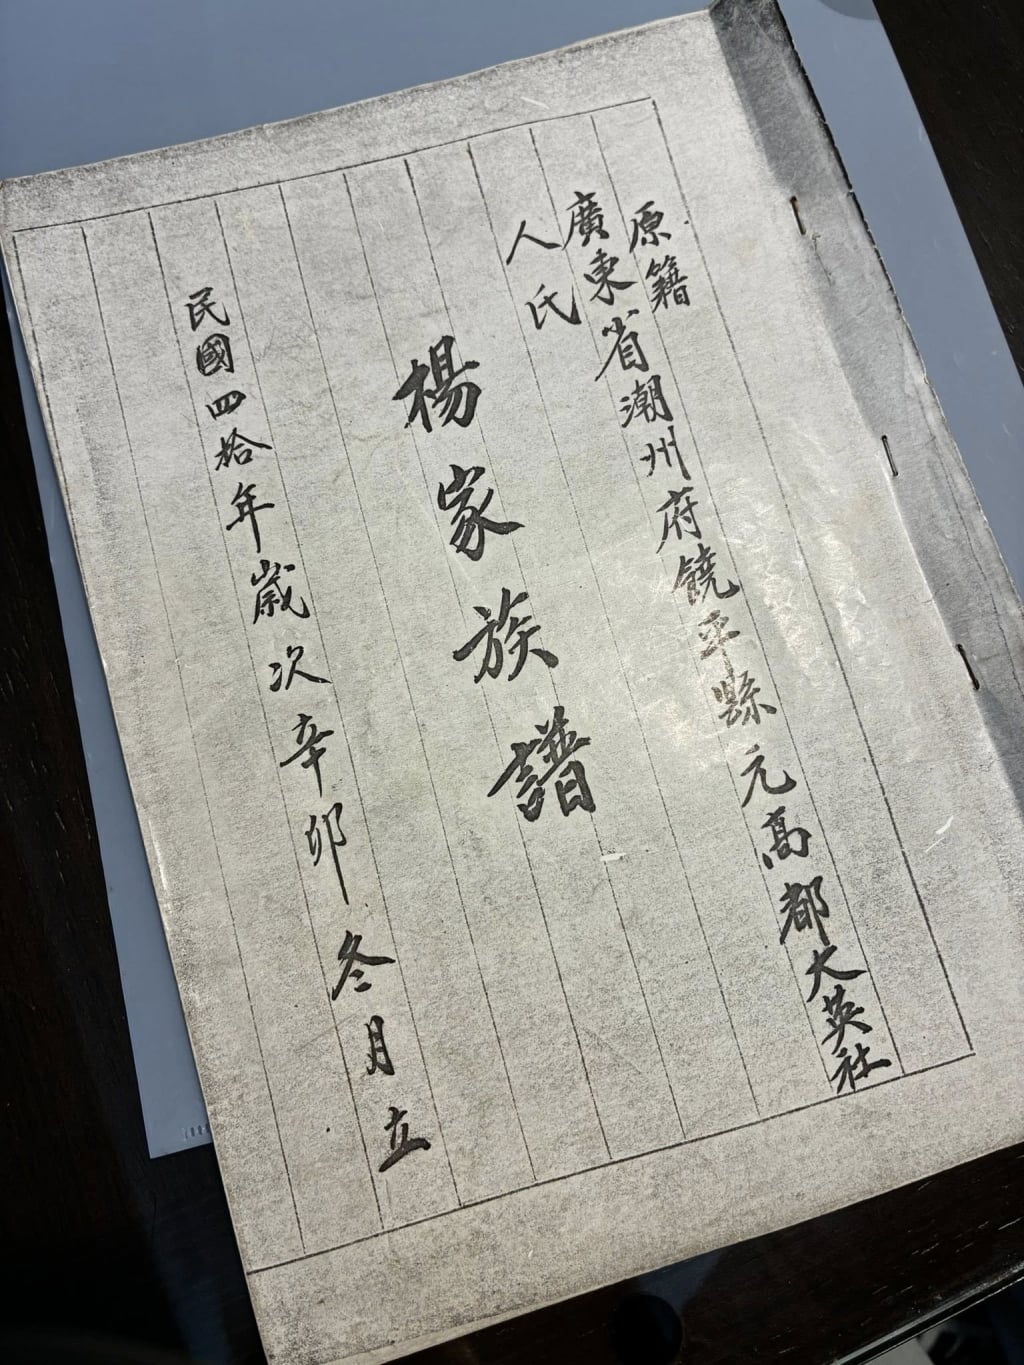 原籍
廣東省潮州府饒平縣元高都大英社
人氏
楊家族譜
民國四拾年歲次辛卯冬月立